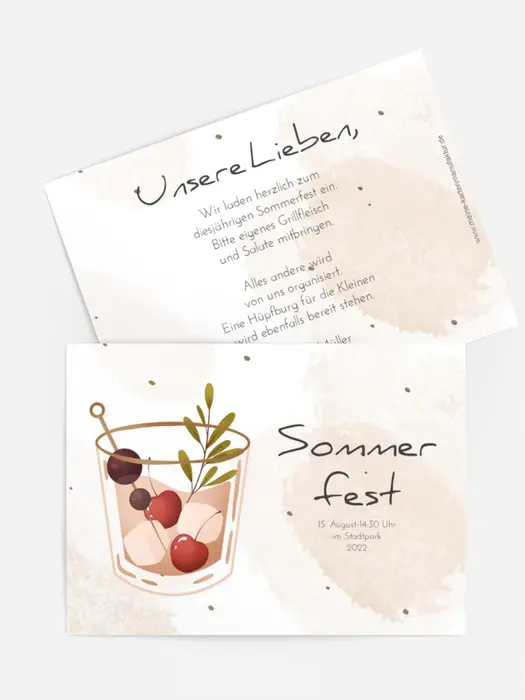 Unsere Lieben,
Wir laden herzlich zum
diesjährigen Sommerfest ein.
Bitte eigenes Grillfleisch
und Salate mitbringen.
Alles andere wird
von uns organisiert.
Eine Hüpfburg für die Kleinen
wird ebenfalls bereit stehen.
www.meine-kartenmanufaktur.de
Sommer
fest
15. August-14.30 Uhr
im Stadtpark
2022